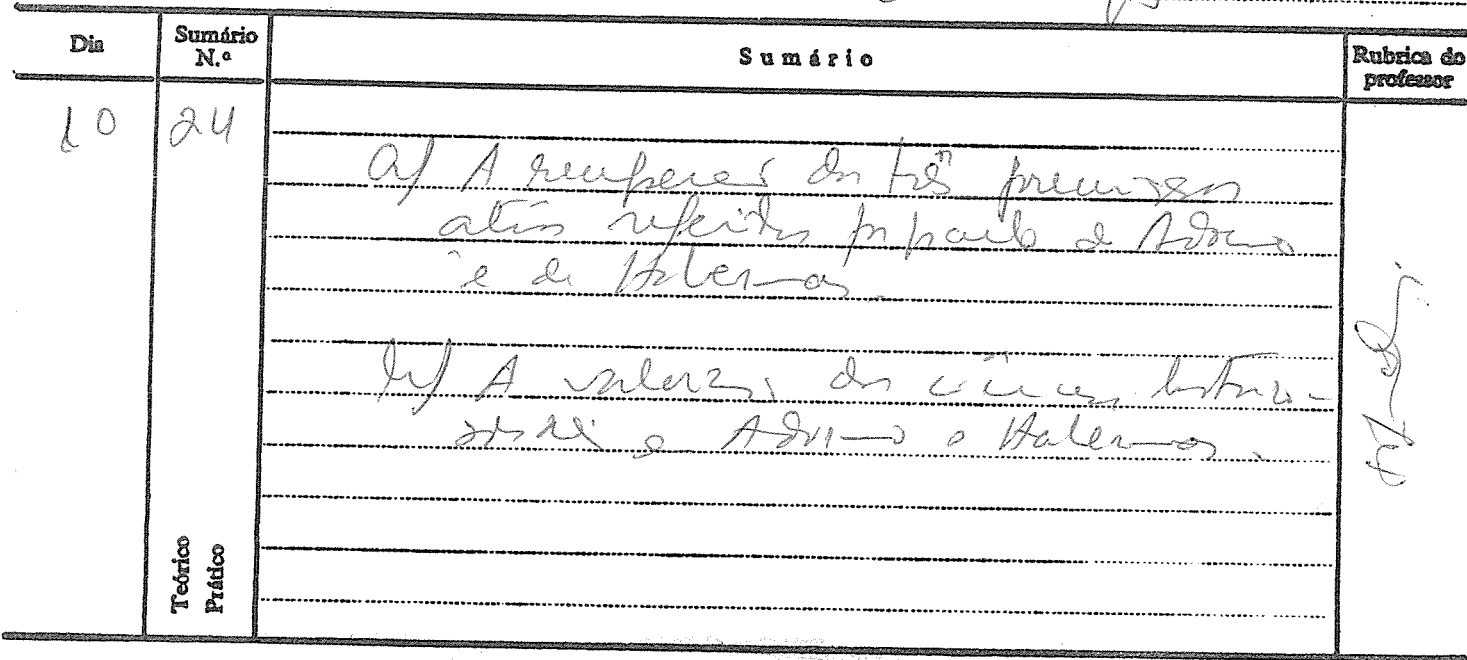 Dia Sumário N.º Sumário Rubrica do professor
10 24
a) A recuperação das três premissas
atrás referidas por parte de Adorno
e de Habermas.
b) A valorização das ciências histórico-
sociais em Adorno e Habermas.
Teórico
Prático